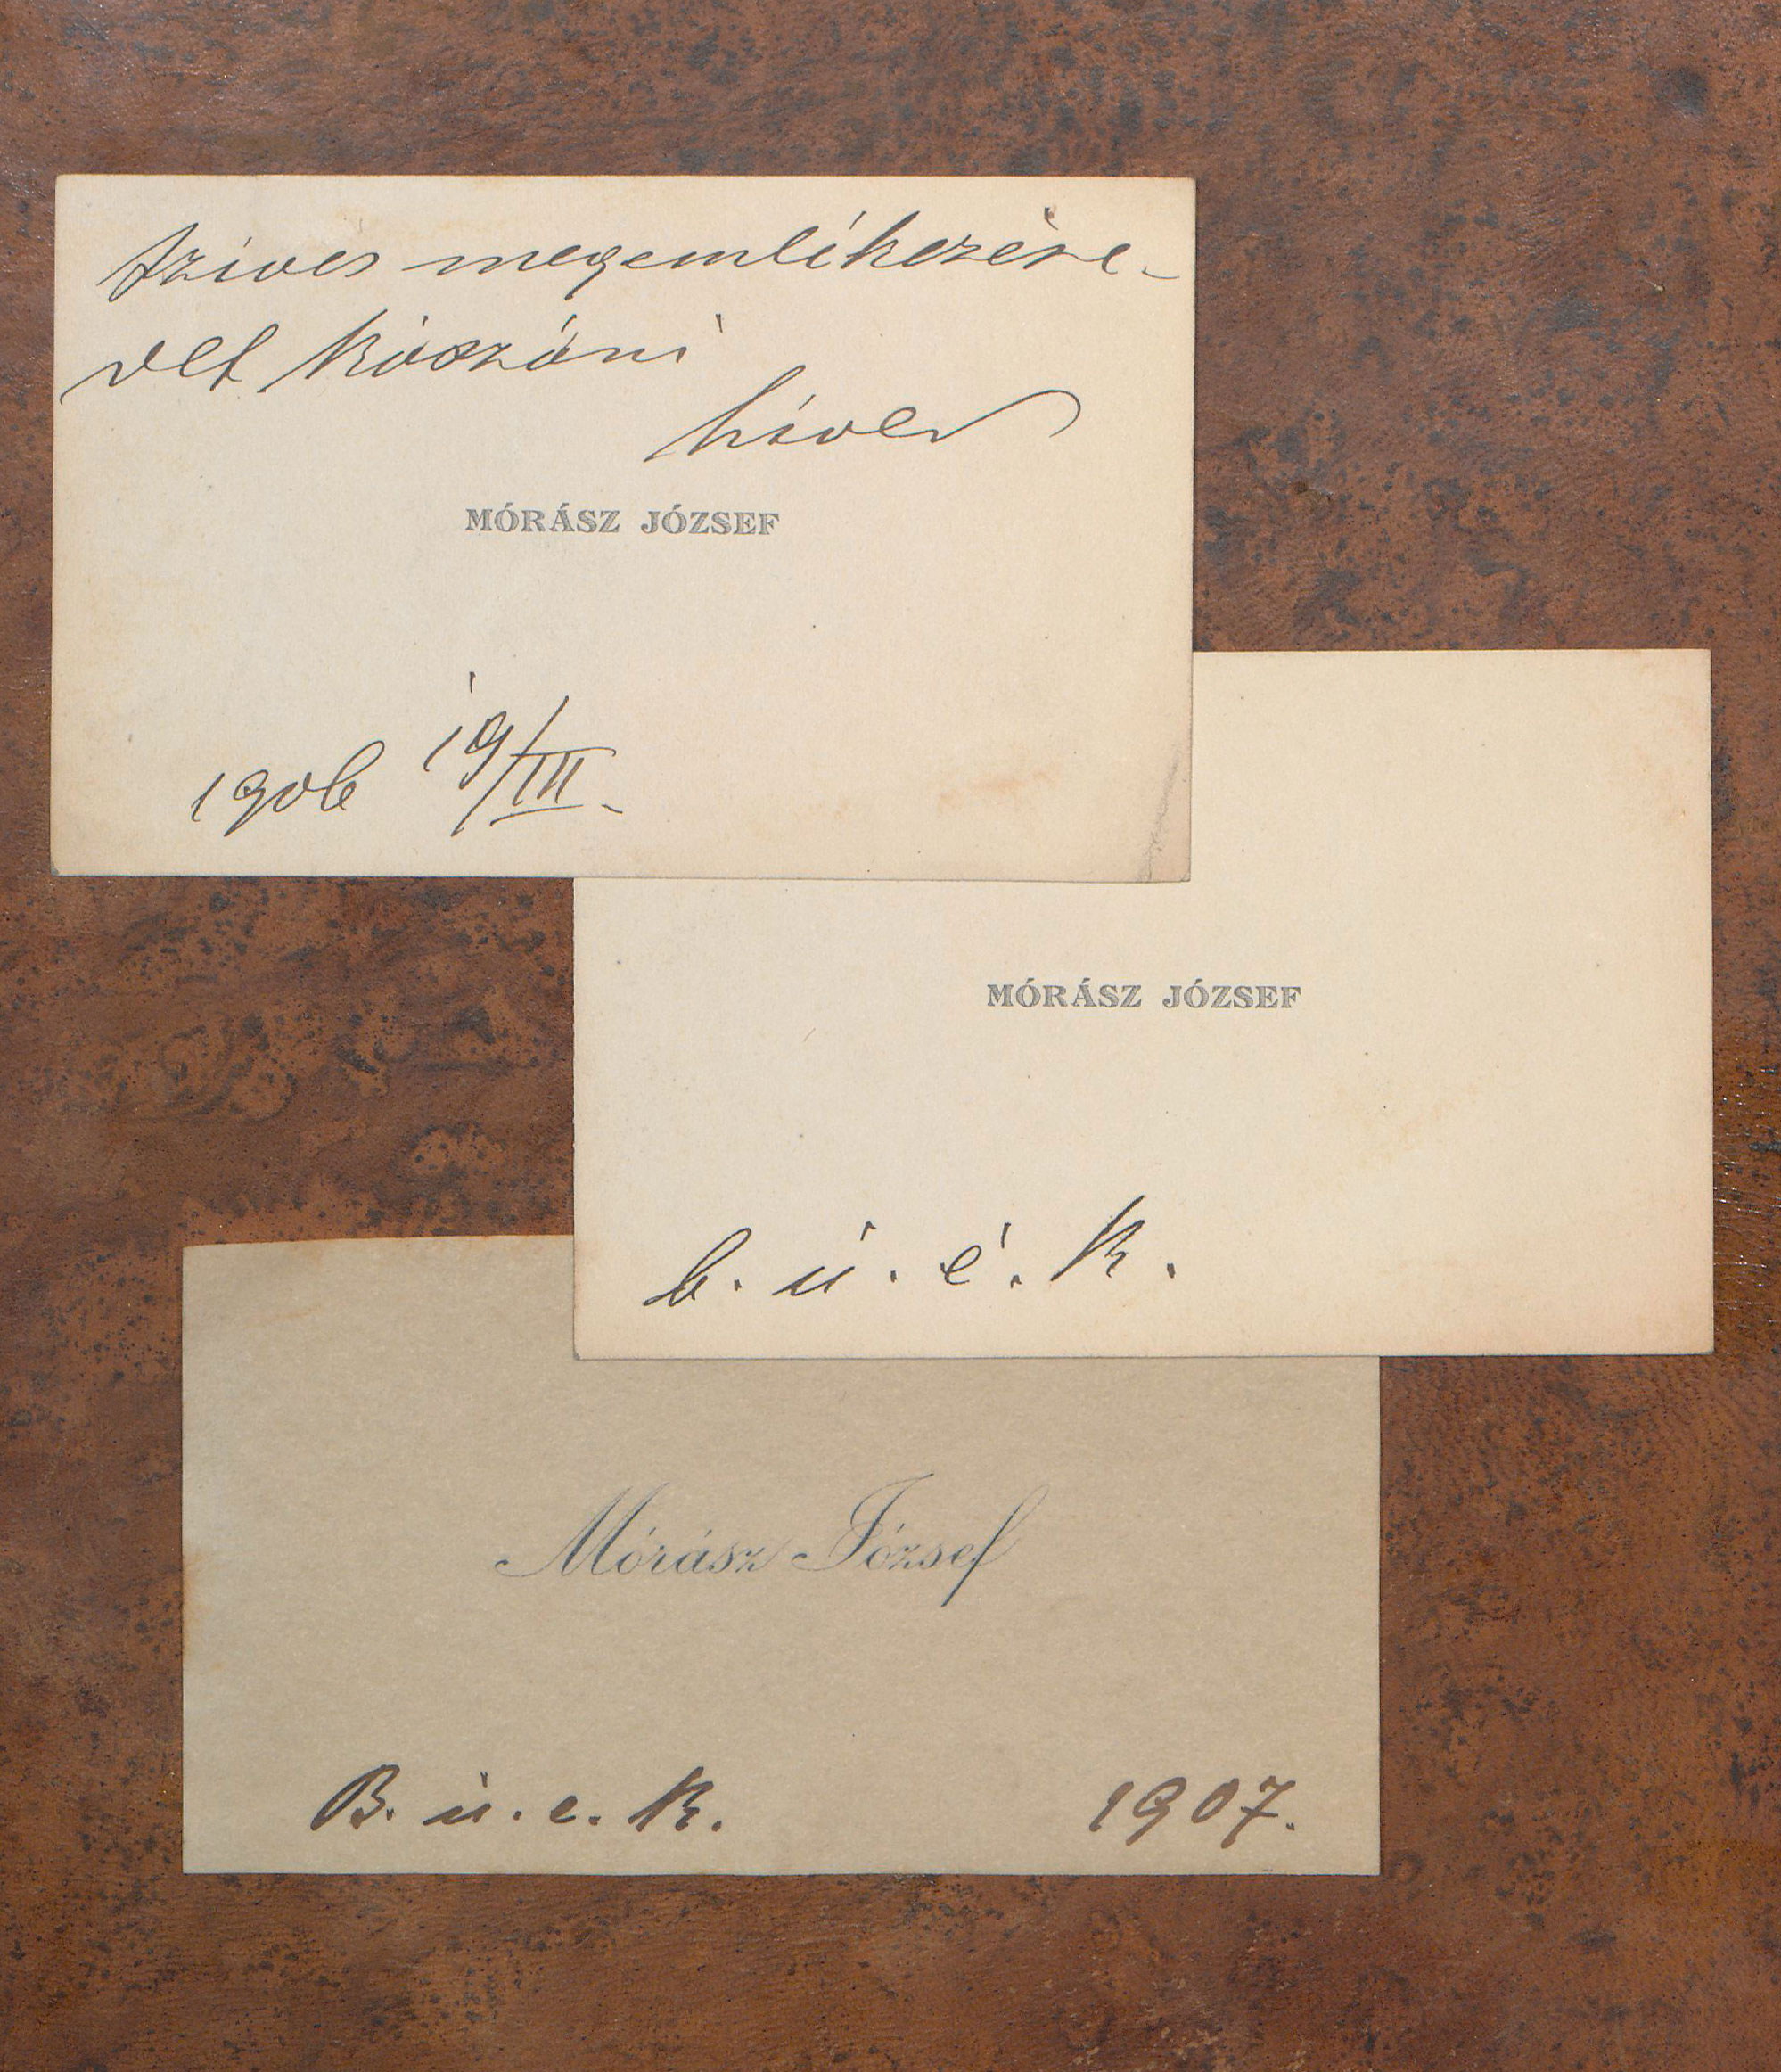 Szives megemlékezése-
det köszöni
hived
MÓRÁSZ JÓZSEF
1906 19/III.
MÓRÁSZ JÓZSEF
b. ú. é. k.
Mórász József
B. ú. e. k. 1907.